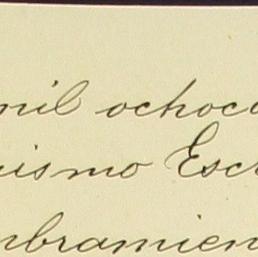 mil ochoc
uismo Esc
mbramien